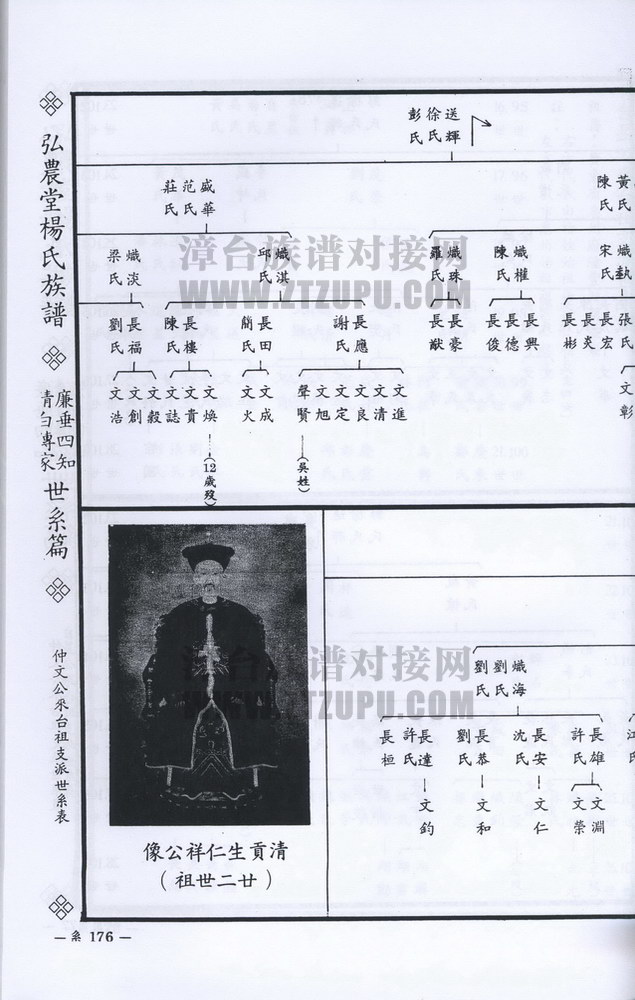 弘農堂楊氏族譜
廉垂四知
青白專家
世系篇
仲文公來台祖支派世系表
送輝
徐氏
彭氏
盛華
范氏
莊氏
黃氏
陳氏
熾淇
邱氏
熾淡
梁氏
熾珠
羅氏
熾權
陳氏
宋氏
長應
謝氏
長田
簡氏
長樓
陳氏
長福
劉氏
長豪
長猷
長興
長德
長俊
張氏
長宏
長炎
長彬
文進
文清
文良
文定
文旭
聲賢
(吳姓)
文成
文火
文煥
(12歲歿)
文貴
文誌
文毅
文創
文浩
文彰
熾海
劉氏
劉氏
長雄
許氏
長安
沈氏
長恭
劉氏
長達
許氏
長桓
江氏
文淵
文榮
文仁
文和
文鈞
清貢生仁祥公像
(廿二世祖)
漳台族谱对接网
WWW.ZTZUPU.COM
漳台族谱对接网
WWW.ZTZUPU.COM
— 系 176 —